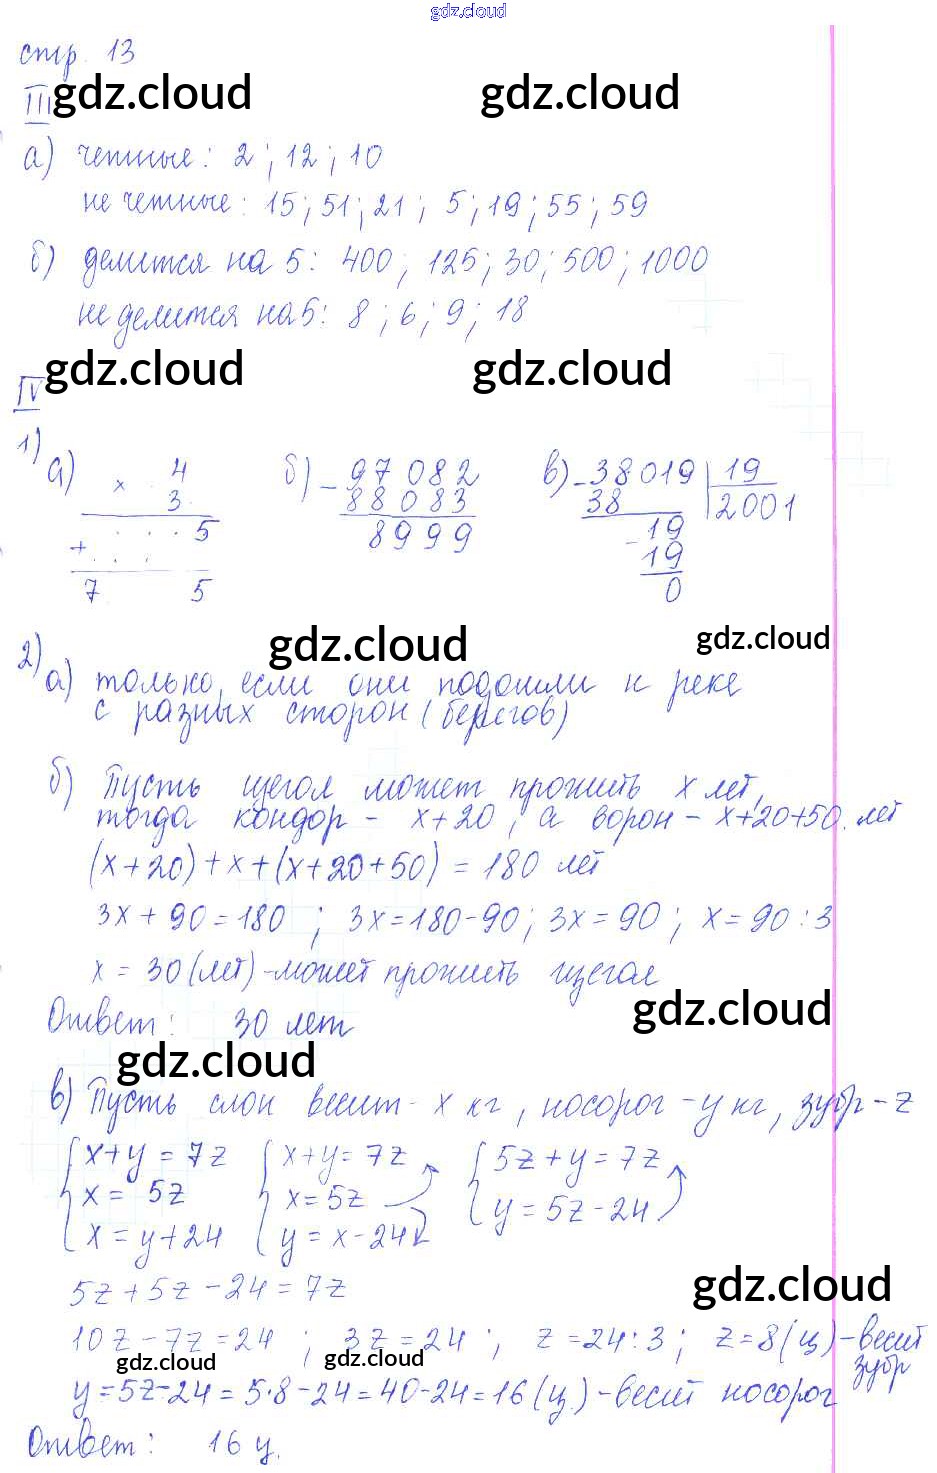 gdz.cloud
стр. 13
III gdz.cloud gdz.cloud
а) четные: 2; 12; 10
не четные: 15; 51; 21; 5; 19; 55; 59
б) делится на 5: 400; 125; 30; 500; 1000
не делится на 5: 8; 6; 9; 18
gdz.cloud gdz.cloud
IV
1)
а) × . 4 б) – 97082 в) – 38019 | 19
3 . 88083 38 2001
. . . 5 8999 19
+ . . . – 19
7 5 0
gdz.cloud gdz.cloud
2)
а) только, если они подошли к реке
с разных сторон (берегов)
б) Пусть щегол может прожить x лет,
тогда кондор – x+20, а ворон – x+20+50 лет
(x+20)+x+(x+20+50) = 180 лет
3x+90=180; 3x=180-90; 3x=90; x=90:3
x = 30 (лет) – может прожить щегол
Ответ: 30 лет
gdz.cloud
gdz.cloud
в) Пусть слон весит – x кг, носорог – y кг, зубр – z
{ x+y = 7z { x+y = 7z { 5z+y = 7z
x = 5z x = 5z y = 5z-24
x = y+24 y = x-24
gdz.cloud
5z+5z-24=7z
10z-7z=24; 3z=24; z=24:3; z=8(ц) – весит зубр
gdz.cloud gdz.cloud
y=5z-24=5·8-24=40-24=16(ц) – весит носорог
Ответ: 16 ц.